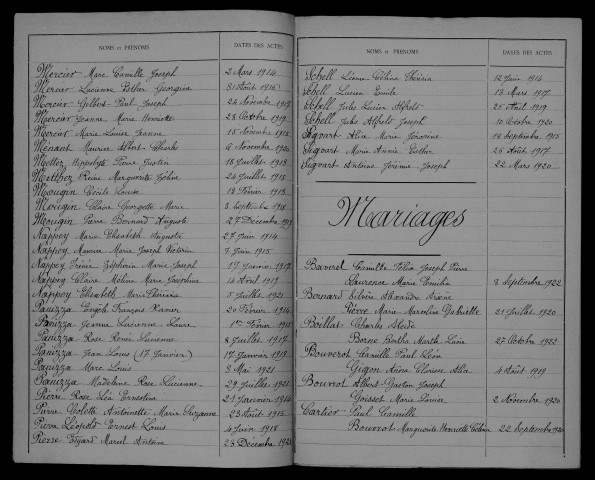 NOMS et PRÉNOMS DATES DES ACTES
Mercier Marc Camille Joseph 2 Mars 1914
Mercier Lucienne Esther Georgina 31 Août 1916
Mercier Gilbert Paul Joseph 24 Novembre 1919
Mercier Jeanne Marie Henriette 28 Octobre 1919
Mercier Marie Louise Jeanne 15 Novembre 1915
Ménant Maurice Albert Charles 9 Novembre 1920
Mettez Hippolyte Pierre Justin 18 Juillet 1918
Metthez Reine Marguerite 24 Juillet 1915
Mougin Cécile Louise 12 Février 1913
Mougin Claire Georgette Marie 3 Septembre 1918
Mougin Pierre Bernard Auguste 27 Décembre
Nappey Marie Elisabeth Augusta 27 Juin 1914
Nappey Maurice Marie Joseph 7 Juin 1915
Nappey Irénée Zéphirin Marie Joseph 17 Janvier 1917
Nappey Claire Méline Marie Joséphine 14 Avril 1919
Nappey Elisabeth Marie 5 Juillet 1921
Panizza Joseph François Xavier 20 Février 1914
Panizza Jeanne Lucienne Laure 1er Février 1915
Panizza Rose Renée Lucienne 8 Juillet 1917
Panizza Jean Louis (17 Janvier) 17 Janvier 1919
Panizza Marc Louis 3 Mai 1921
Panizza Madeleine Rose Lucienne 29 Juillet 1921
Pierre Rose Léa Ernestine 21 Janvier 1914
Pierre Colette Antoinette Marie Suzanne 23 Août 1915
Pierre Léopold Ernest Louis 4 Juin 1918
Pierre Edgard Marcel Antoine 23 Décembre 1921
NOMS et PRÉNOMS DATES DES ACTES
Schell Léonie Céline 12 Juin 1914
Schell Lucien Emile 13 Mars 1917
Schell Jules Lucien Alfred 25 Août 1919
Schell Jules Alfred Joseph 10 Octobre 1920
Sigvart Alice Marie 18 Septembre 1915
Sigvart Marie Annie Esther 26 Août 1917
Sigvart Antoine Jérémie Joseph 22 Mars 1920
Mariages
Baverel Camille Félix Joseph Pierre
Laurence Marie Emilia 2 Septembre 1922
Bernard Silvère Alexandre Arsène
Pièvre Marie Marceline Gabrielle 21 Juillet 1920
Boillat Charles Alcide
Borne Bertha Marthe Laure 27 Octobre 1922
Bouverot Camille Paul Léon
Gigon Alba 4 Août 1919
Bouvrot Albert Gaston Joseph
Gosset Marie Louise 2 Novembre 1920
Cartier Paul Camille
Bouvrot Marguerite Henriette Céline 22 Septembre 1920